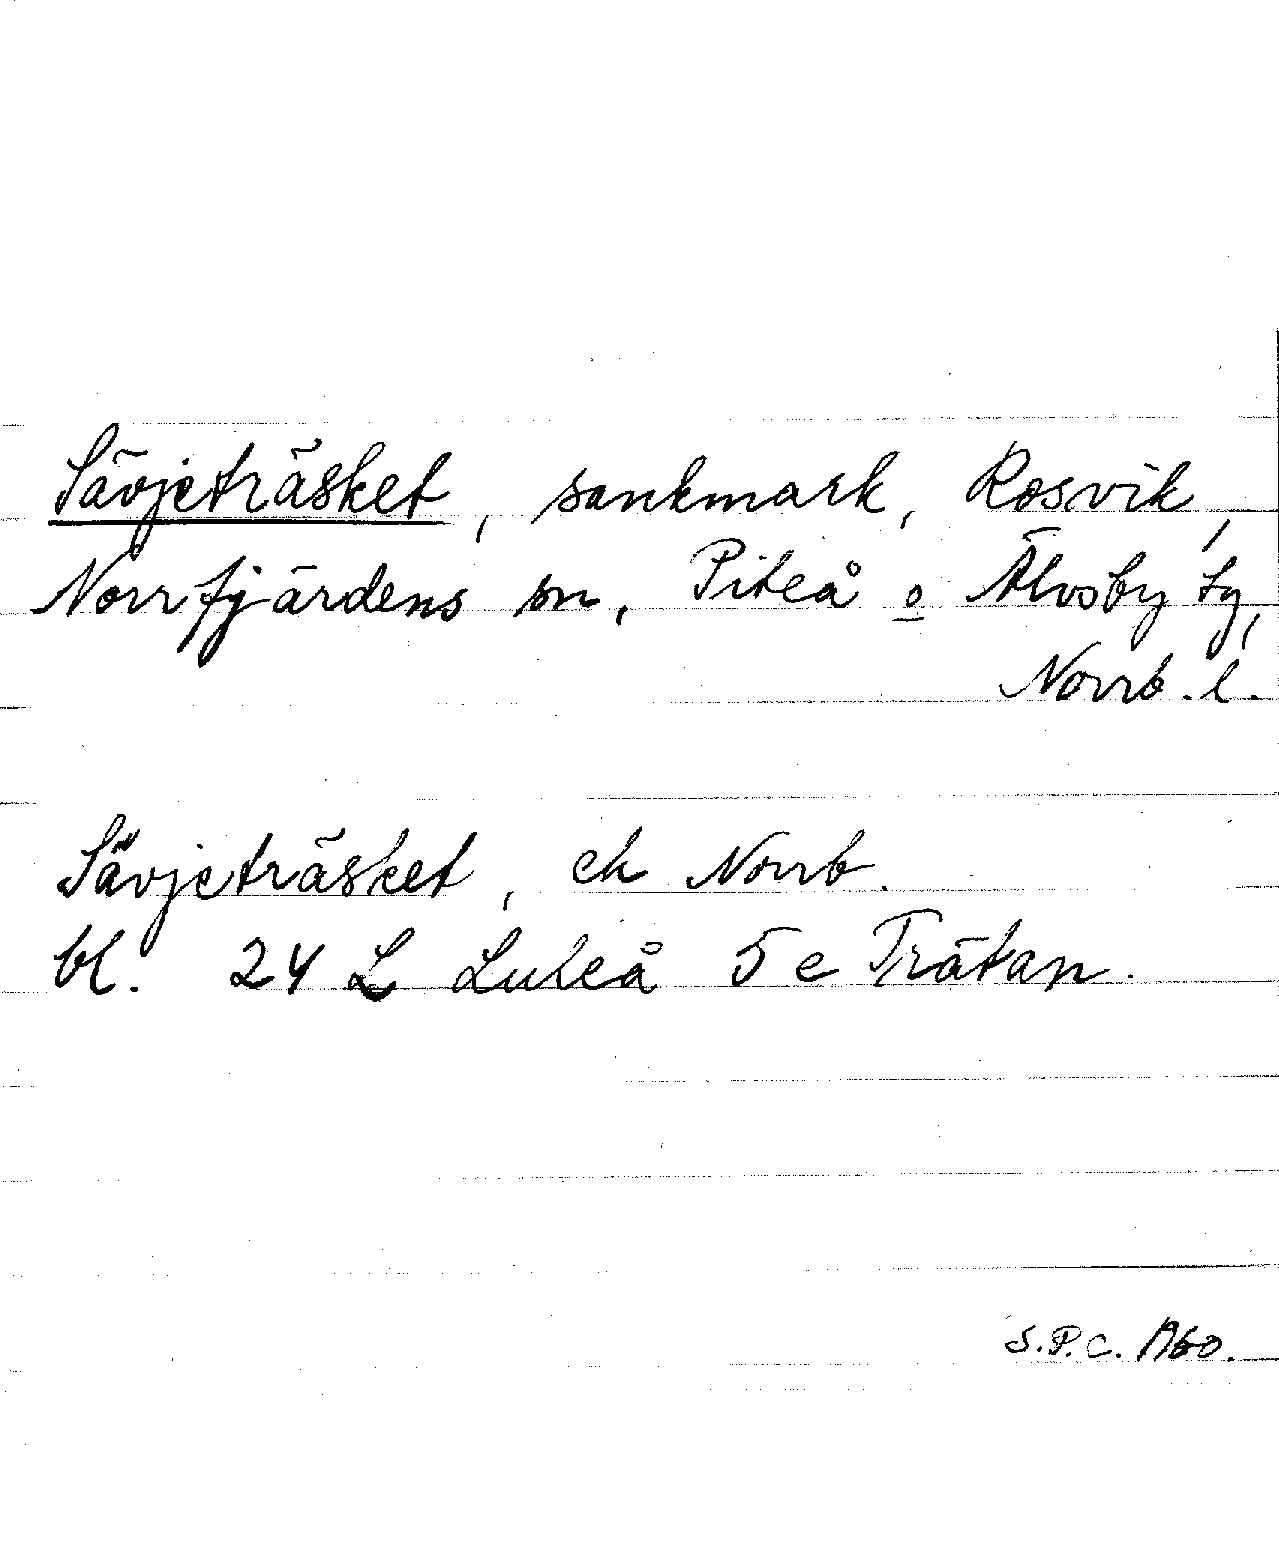 Sävjeträsket, sankmark, Rosvik,
Norrfjärdens sn, Piteå o Älvsby tg,
Norrb. l.
Sävjeträsket, ek Norrb.
bl. 24 L Luleå 5 e Trätan.
S.P.C. 1960.